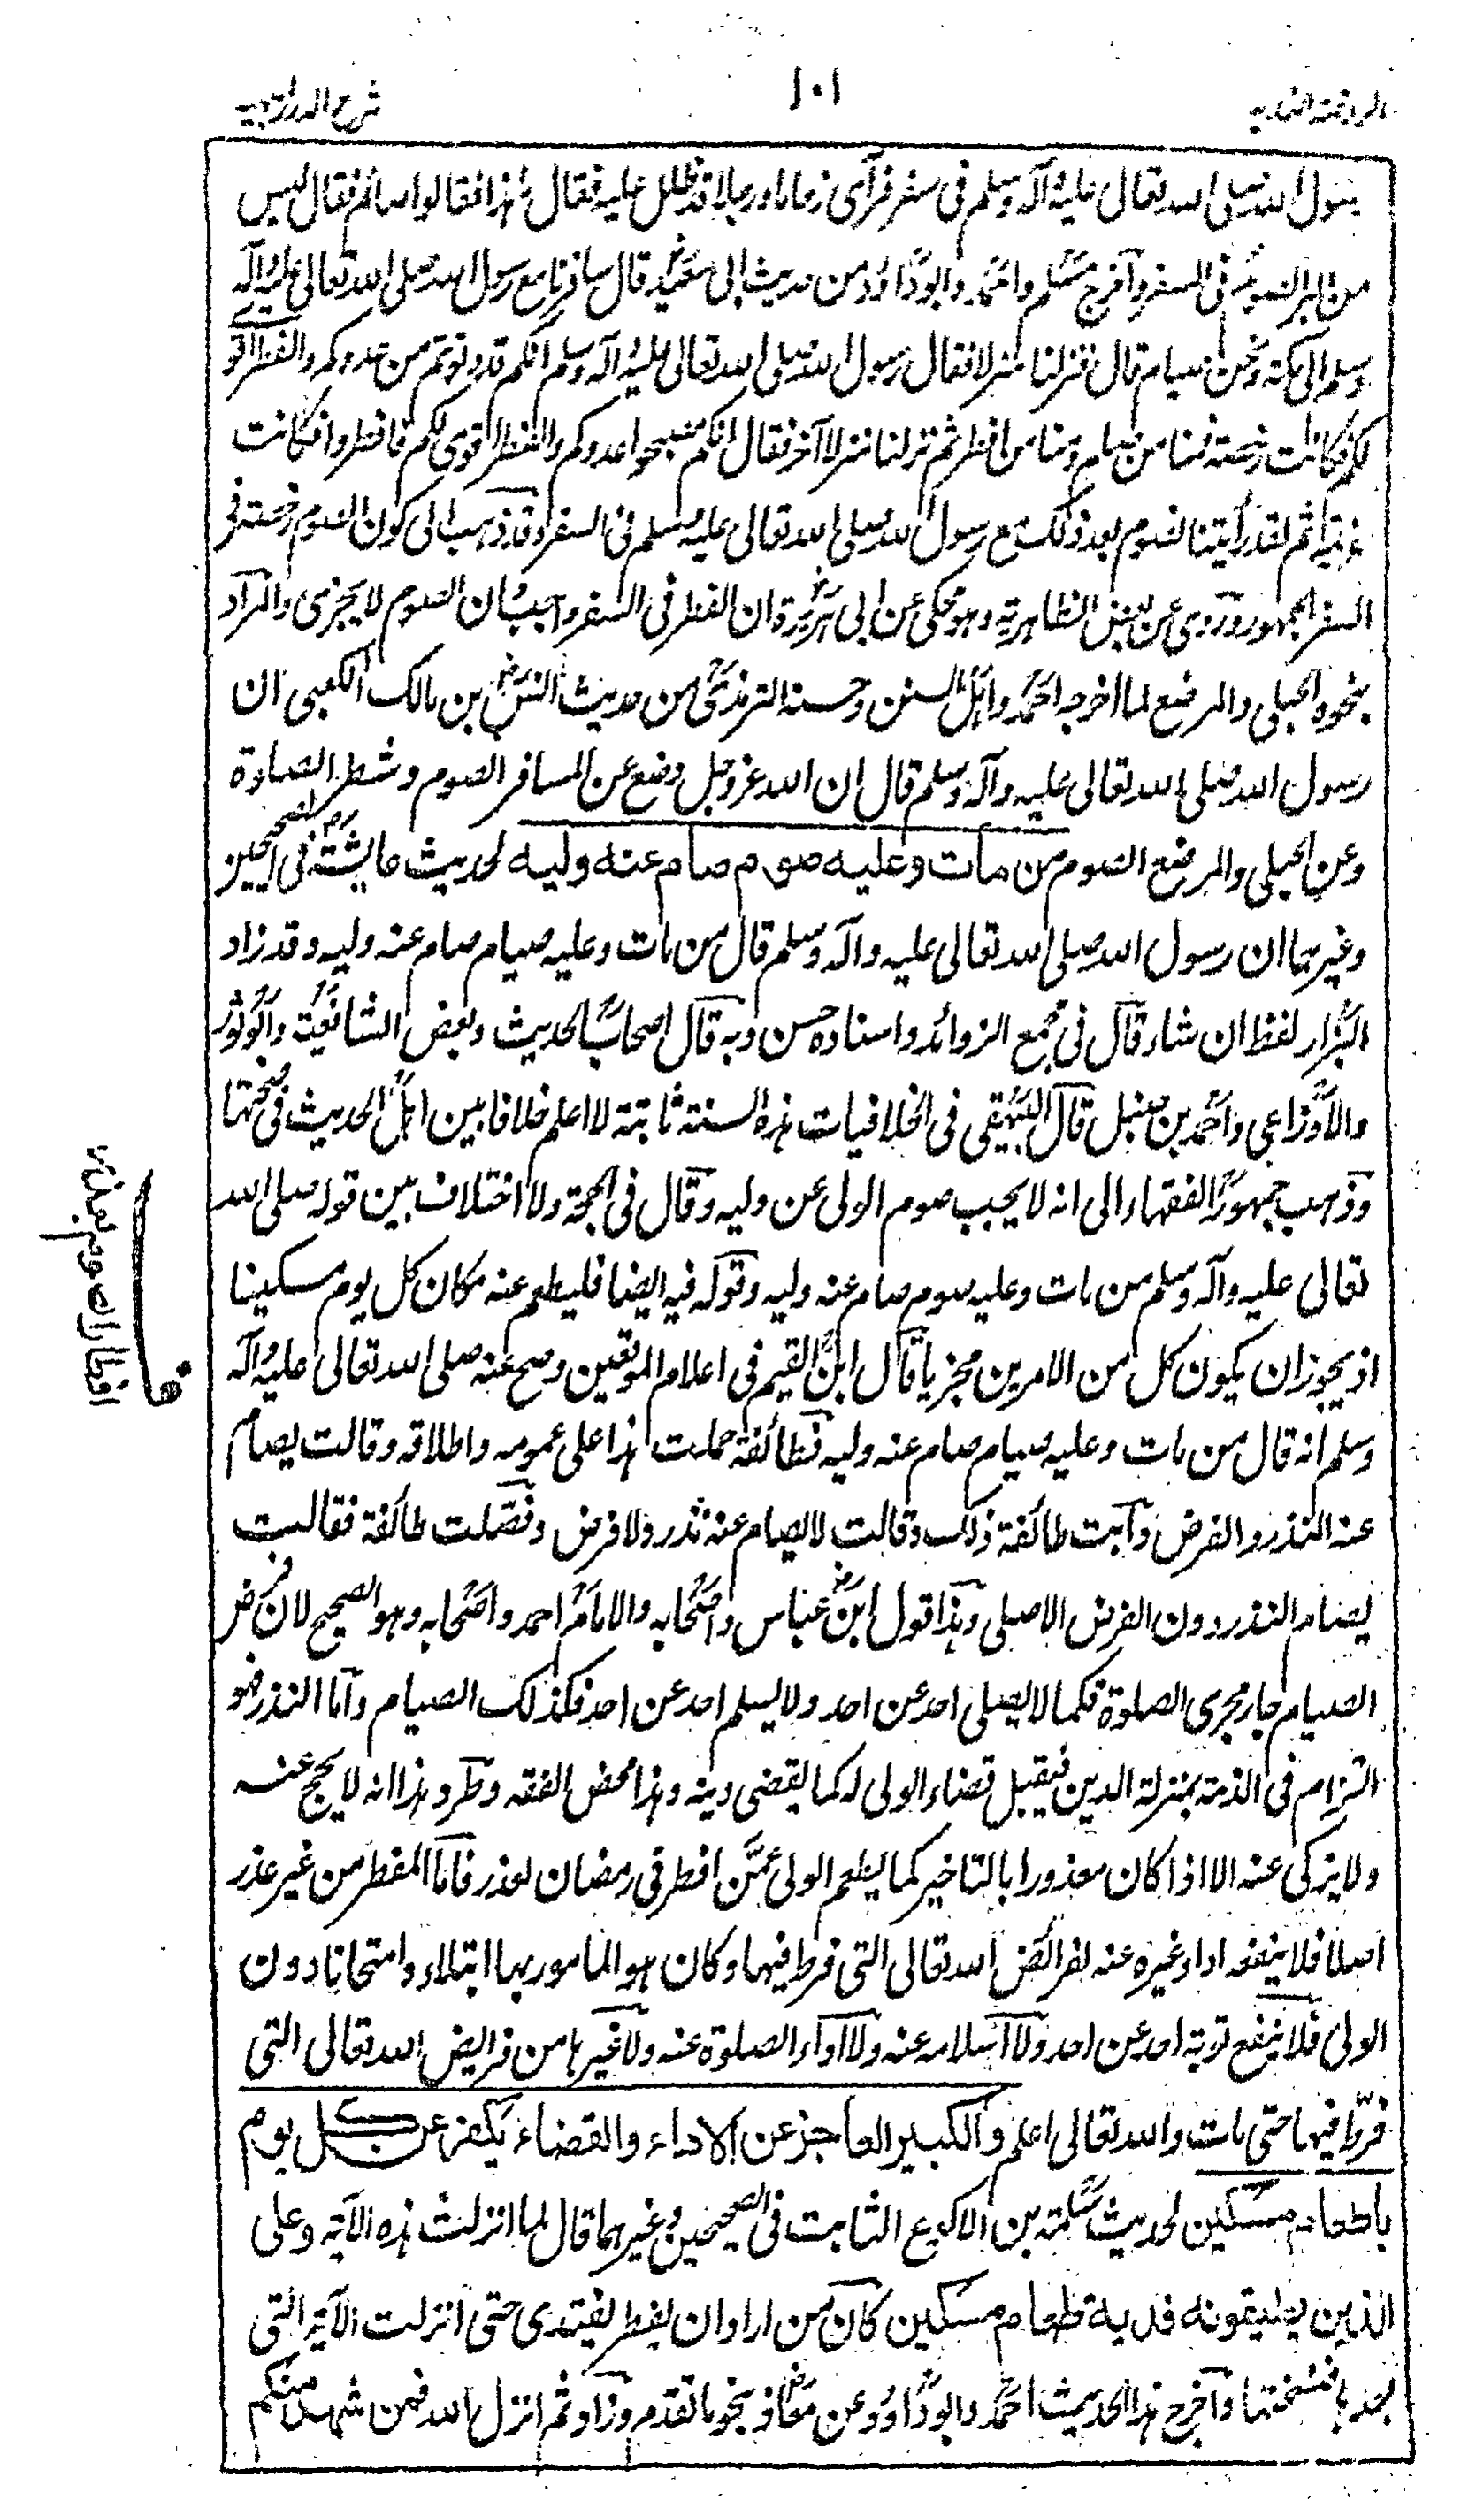 الروضة الندية
١٠١
شرح الدرر البهية
رسول الله صلى الله تعالى عليه وآله وسلم فى سفر فرأى زحاما ورجلا قد ظلل عليه فقال ما هذا فقالوا صائم فقال ليس
من البر الصوم فى السفر وأخرج مسلم وأحمد وابوداؤد من حديث ابى سعيد قال سافرنا مع رسول الله صلى الله تعالى عليه وآله
وسلم الى مكة ونحن صيام قال فنزلنا منزلا فقال رسول الله صلى الله تعالى عليه وآله وسلم انكم قد دنوتم من عدوكم والفطر اقوى
لكم فكانت رخصة فمنا من صام ومنا من افطر ثم نزلنا منزلا آخر فقال انكم مصبحوا عدوكم والفطر اقوى لكم فافطروا فكانت
عزيمة ثم لقد رأيتنا نصوم بعد ذلك مع رسول الله صلى الله تعالى عليه وسلم فى السفر وقد ذهب الى كون الصوم رخصة فى
السفر الجمهور وروى عن بعض الظاهرية وهو محكى عن ابى هريرة ان الفطر فى السفر واجب وان الصوم لا يجزى والمراد
بنحوه الحبلى والمرضع لما اخرجه احمد واهل السنن وحسنه الترمذى من حديث انس بن مالك الكعبى ان
رسول الله صلى الله تعالى عليه وآله وسلم قال ان الله عز وجل وضع عن المسافر الصوم وشطر الصلوة
وعن الحبلى والمرضع الصوم من مات وعليه صوم صام عنه وليه لحديث عايشة فى الصحيحين
وغيرهما ان رسول الله صلى الله تعالى عليه وآله وسلم قال من مات وعليه صيام صام عنه وليه وقد زاد
البزار لفظ ان شاء قال فى مجمع الزوائد واسناده حسن وبه قال اصحاب الحديث وبعض الشافعية وابوثور
والاوزاعى واحمد بن حنبل قال البيهقى فى الخلافيات هذه السنة ثابتة لا اعلم خلافا بين اهل الحديث فى صحتها
وذهب جمهور الفقهاء الى انه لا يجب صوم الولى عن وليه وقال فى الحجة ولا اختلاف بين قوله صلى الله
تعالى عليه وآله وسلم من مات وعليه صوم صام عنه وليه وقوله فيه ايضا فليطعم عنه مكان كل يوم مسكينا
اذ يجوز ان يكون كل من الامرين مجزيا قال ابن القيم فى اعلام الموقعين وصح عنه صلى الله تعالى عليه وآله
وسلم انه قال من مات وعليه صيام صام عنه وليه فطائفة حملت هذا على عمومه واطلاقه وقالت يصام
عنه النذر والفرض وأبت طائفة ذلك وقالت لا يصام عنه نذر ولا فرض وفصلت طائفة فقالت
يصام النذر دون الفرض الاصلى وهذا قول ابن عباس واصحابه والامام احمد واصحابه وهو الصحيح لان فرض
الصيام جار مجرى الصلوة فكما لا يصلى احد عن احد ولا يسلم احد عن احد فكذلك الصيام وأما النذر فهو
التزام فى الذمة بمنزلة الدين فيقبل قضاء الولى له كما يقضى دينه وهذا محض الفقه وطرد هذا انه لا يحج عنه
ولا يزكى عنه الا اذا كان معذورا بالتاخير كما يطعم الولى عمن افطر فى رمضان لعذر فاما المفطر من غير عذر
اصلا فلا ينفعه اداء غيره عنه لفرائض الله تعالى التى فرط فيها وكان هو المامور بها ابتلاء وامتحانا دون
الولى فلا ينفع توبة احد عن احد ولا اسلامه عنه ولا اداء الصلوة عنه ولا غيرها من فرايض الله تعالى التى
فرط فيها حتى مات والله تعالى اعلم والكبير العاجز عن الاداء والقضاء يكفر عن كل يوم
باطعام مسكين لحديث سلمة بن الاكوع الثابت فى الصحيحين وغيرهما قال لما انزلت هذه الآية وعلى
الذين يطيقونه فدية طعام مسكين كان من اراد ان يفطر يفتدى حتى انزلت الآية التى
بعدها فنسختها وأخرج هذا الحديث احمد وابوداؤد عن معاذ بنحو ما تقدم وزاد ثم انزل الله فمن شهد منكم